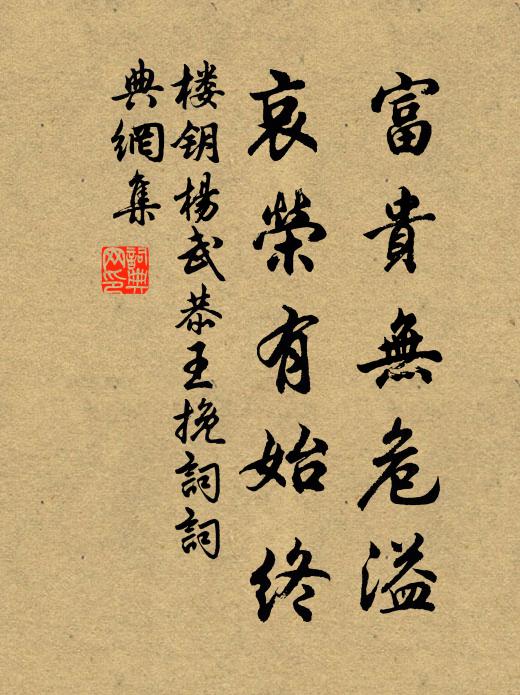 富貴無危溢
哀榮有始終
楼钥楊武恭王挽詞詞
典網集
詞典
网印